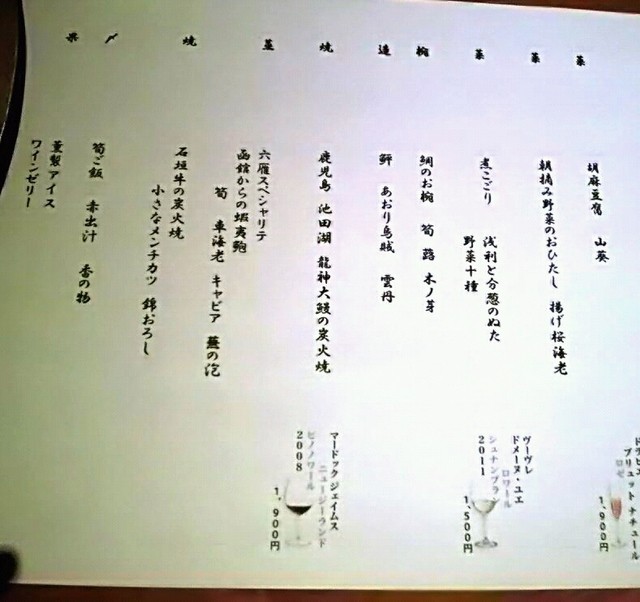 菜
胡麻豆腐 山葵
菜
朝摘み野菜のおひたし 揚げ桜海老
菜
煮こごり 浅利と分葱のぬた
野菜十種
椀
鯛のお椀 筍 蕗 木ノ芽
造
鮃 あおり烏賊 雲丹
焼
鹿児島 池田湖 龍神大鰻の炭火焼
六雁スペシャリテ
函館からの蝦夷鮑
筍 車海老 キャビア 蕪の泡
焼
石垣牛の炭火焼
小さなメンチカツ 錦おろし
〆
筍ご飯 赤出汁 香の物
果
薫製アイス
ワインゼリー
ブリュット ナチュール
ロゼ
1,900円
ヴーヴレ
ドメーヌ・ユエ
ロワール
シュナンブラン
2011
1,500円
マードック ジェイムス
ニュージーランド
ピノノワール
2008
1,900円